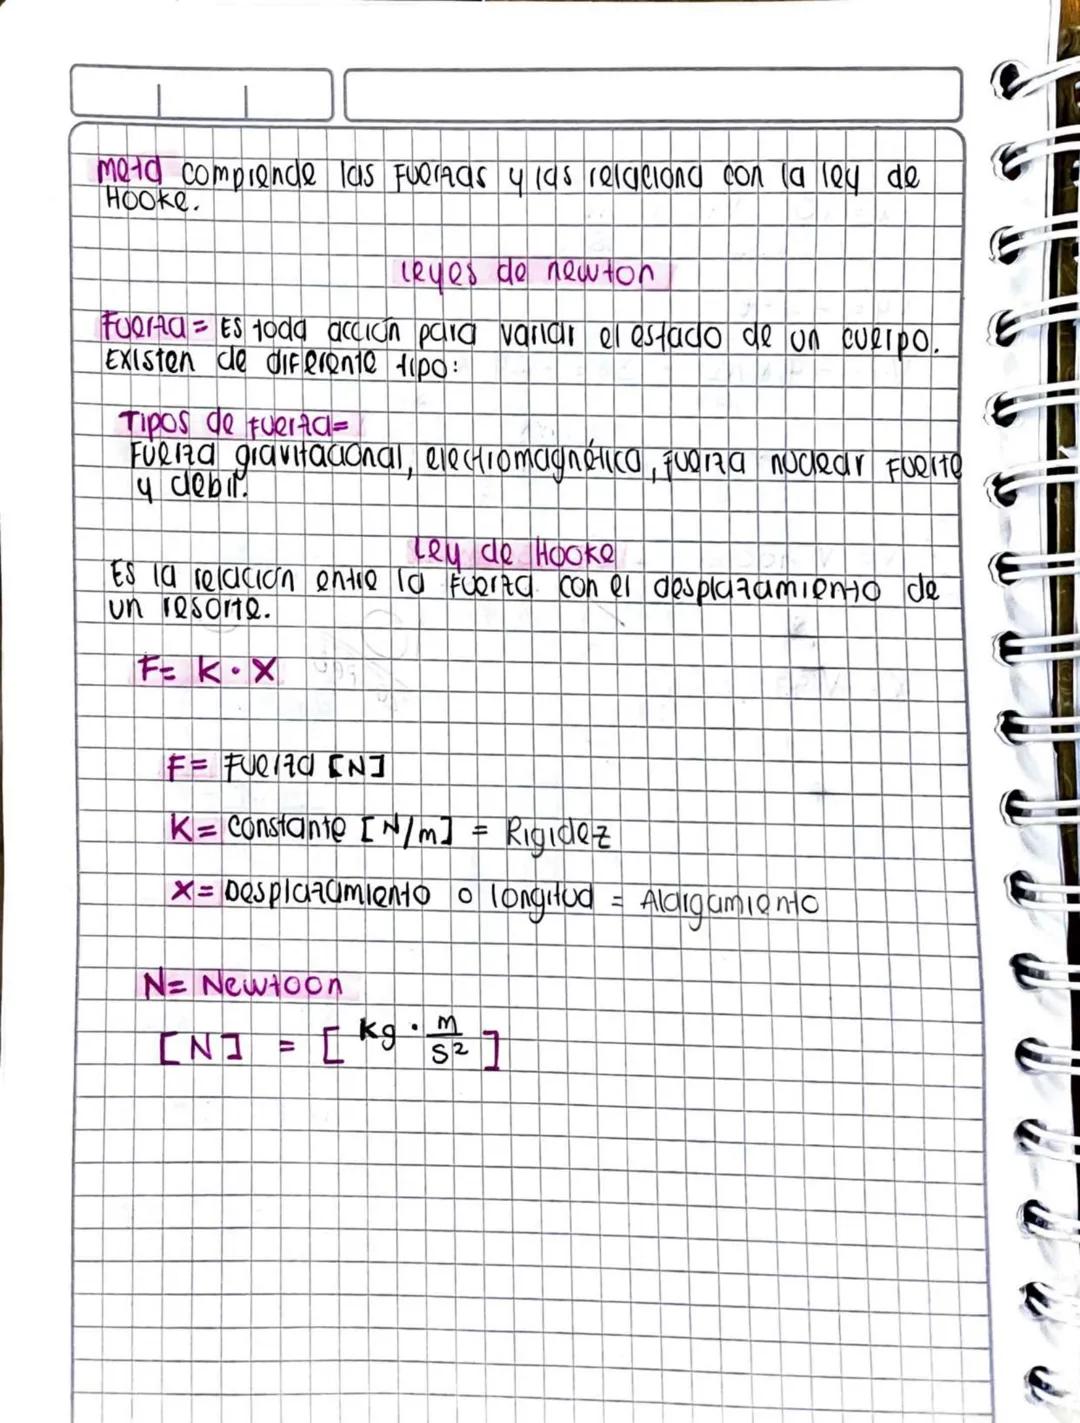 meta comprende las Fuerzas y las relaciona con la ley de
Hooke.
leyes de newton
Fuerza = Es toda acción para variar el estado de un cuerpo.
Existen de diferente tipo:
Tipos de fuerza=
Fuerza gravitacional, electromagnética, fuerza nuclear fuerte
y debil.
Ley de Hooke
Es la relación entre la fuerza con el desplazamiento de
un resorte.
F= K · X
F= Fuerza [N]
K= constante [N/m] = Rigidez
X= Desplazamiento o longitud = Alargamiento
N= Newtoon
[N] = [kg · m/s²]